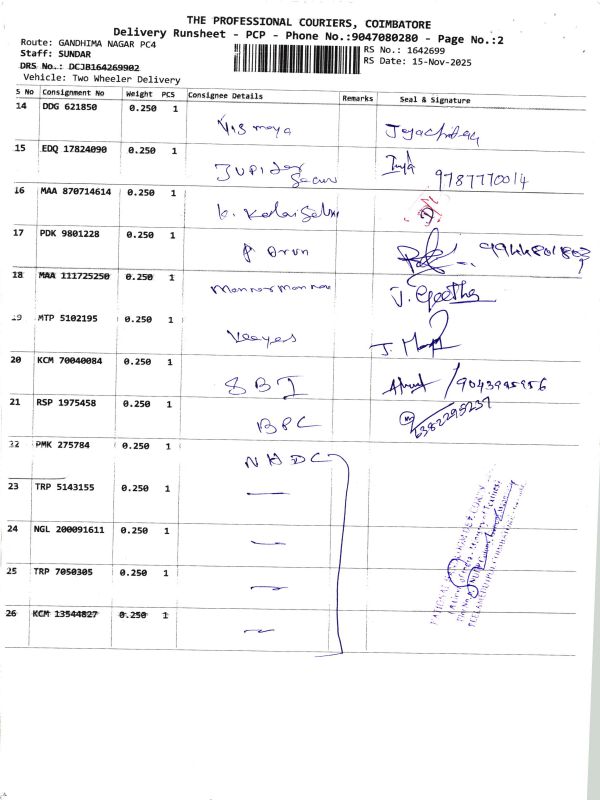 THE PROFESSIONAL COURIERS, COIMBATORE
Delivery Runsheet - PCP - Phone No.:9047080280 - Page No.:2
Route: GANDHIMA NAGAR PC4
RS No.: 1642699
Staff: SUNDAR
RS Date: 15-Nov-2025
DRS No.: DCJB164269902
Vehicle: Two Wheeler Delivery
S No Consignment No Weight PCS Consignee Details Remarks Seal & Signature
14 DDG 621850 0.250 1
Vismaya
15 EDQ 17824090 0.250 1
Jupiter
9787770014
16 MAA 870714614 0.250 1
K. Kalai Selvi
17 PDK 9801228 0.250 1
P Arun
18 MAA 111725250 0.250 1
J. Geetha
19 MTP 5102195 0.250 1
Veeyes
20 KCM 70040084 0.250 1
SBI /9043995956
21 RSP 1975458 0.250 1
BPC 6382295237
22 PMK 275784 0.250 1
NHDC
23 TRP 5143155 0.250 1
24 NGL 200091611 0.250 1
25 TRP 7050305 0.250 1
26 KCM 13544827 0.250 1